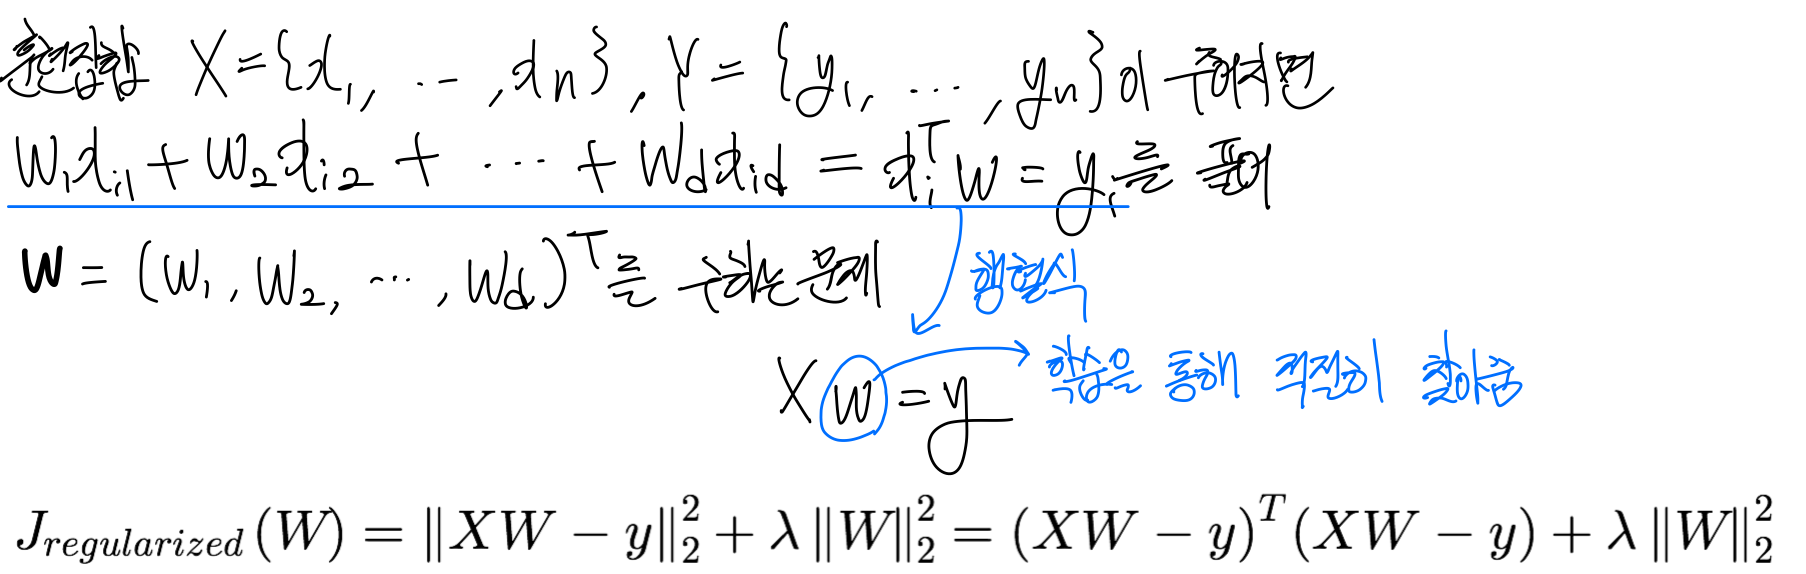 훈련집합 X = {x₁, ⋯, xₙ}, Y = {y₁, ⋯, yₙ}이 주어지면
w₁xᵢ₁ + w₂xᵢ₂ + ⋯ + w_d x_id = xᵢᵀw = yᵢ를 풀어
w = (w₁, w₂, ⋯, w_d)ᵀ를 구하는 문제
행렬식
Xw = y 학습을 통해 적절히 찾아냄
J_regularized(W) = ‖XW − y‖₂² + λ‖W‖₂² = (XW − y)ᵀ(XW − y) + λ‖W‖₂²